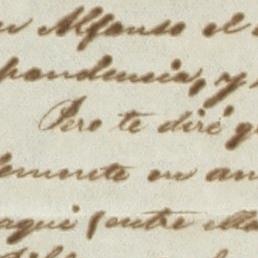 n Alfonso el
pondencia, y
Pero te diré q
lemente en an
aqui (entre ella